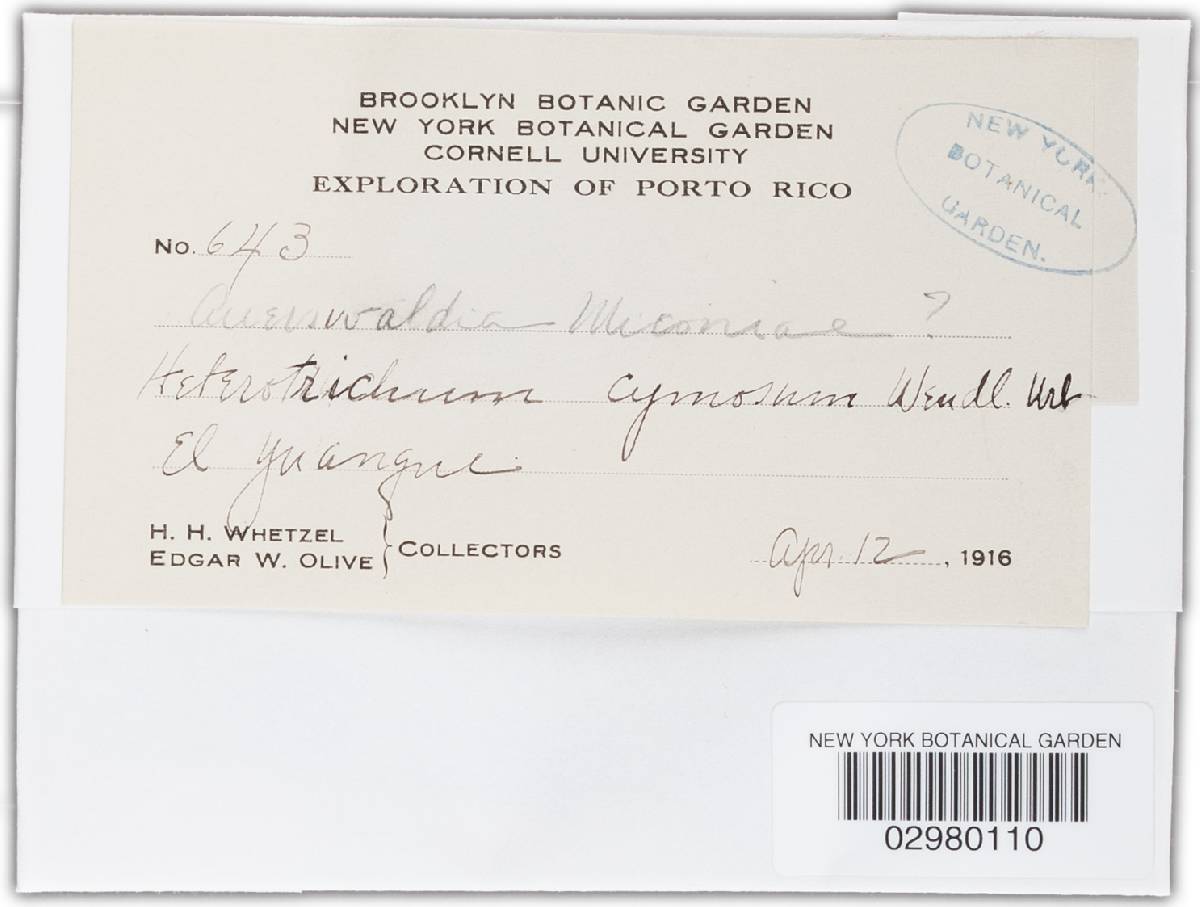 BROOKLYN BOTANIC GARDEN
NEW YORK BOTANICAL GARDEN
CORNELL UNIVERSITY
EXPLORATION OF PORTO RICO
NEW YORK
BOTANICAL
GARDEN.
No. 643
Auerswaldia Miconiae ?
Heterotrichum cymosum Wendl. Urb
El Yuangue
H. H. WHETZEL
EDGAR W. OLIVE } COLLECTORS
Apr. 12, 1916
NEW YORK BOTANICAL GARDEN
02980110